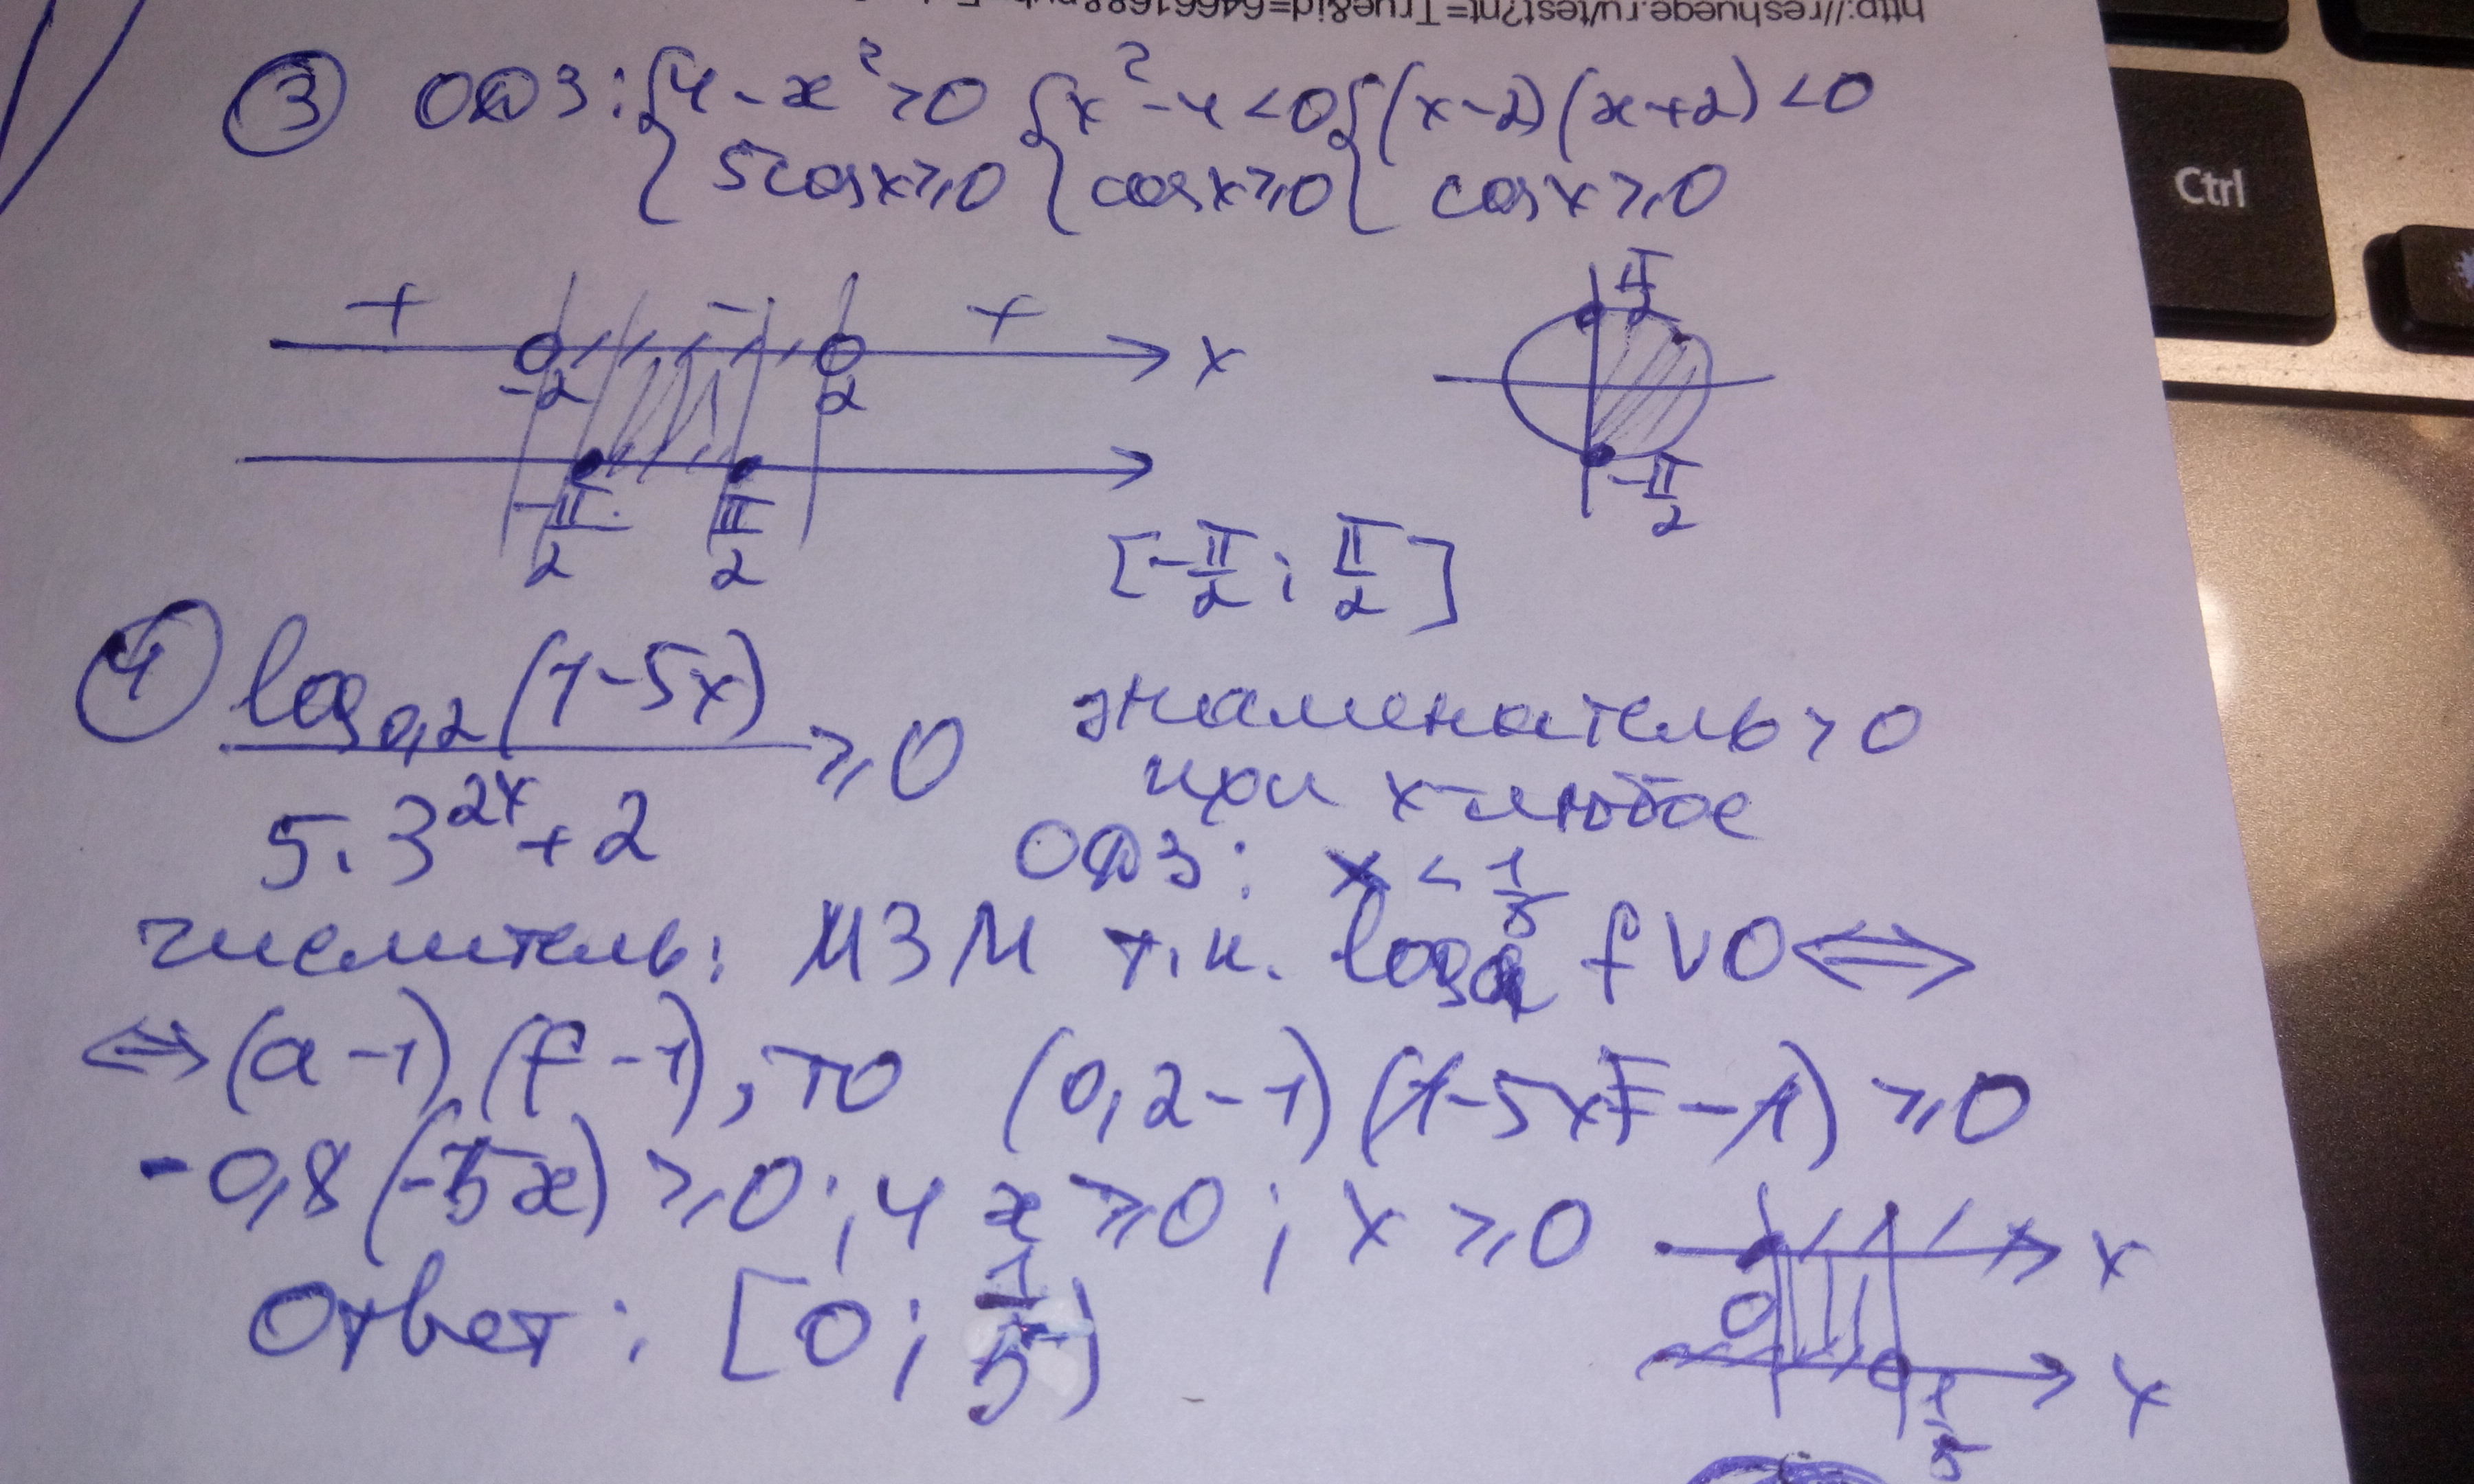 http://reshuege.ru/test?nt=True&id=6466168&pub=
③ ОДЗ: {4-x²>0 {x²-4<0 {(x-2)(x+2)<0
{5cosx≥0 {cosx≥0 {cosx≥0
+ - + x
-2 2
-π/2 π/2
π/2
-π/2
[-π/2; π/2]
④ log₀,₂(1-5x) / (5·3²ˣ+2) ≥0 знаменатель>0
при x-любое
ОДЗ: x < 1/5
числитель: МЗМ т.к. logₐ f V 0 ⟺
⟺ (a-1)(f-1), то (0,2-1)(1-5x-1) ≥0
-0,8(-5x) ≥0; 4x ≥0; x ≥0
Ответ: [0; 1/5)
x
0
x
1/5
Ctrl